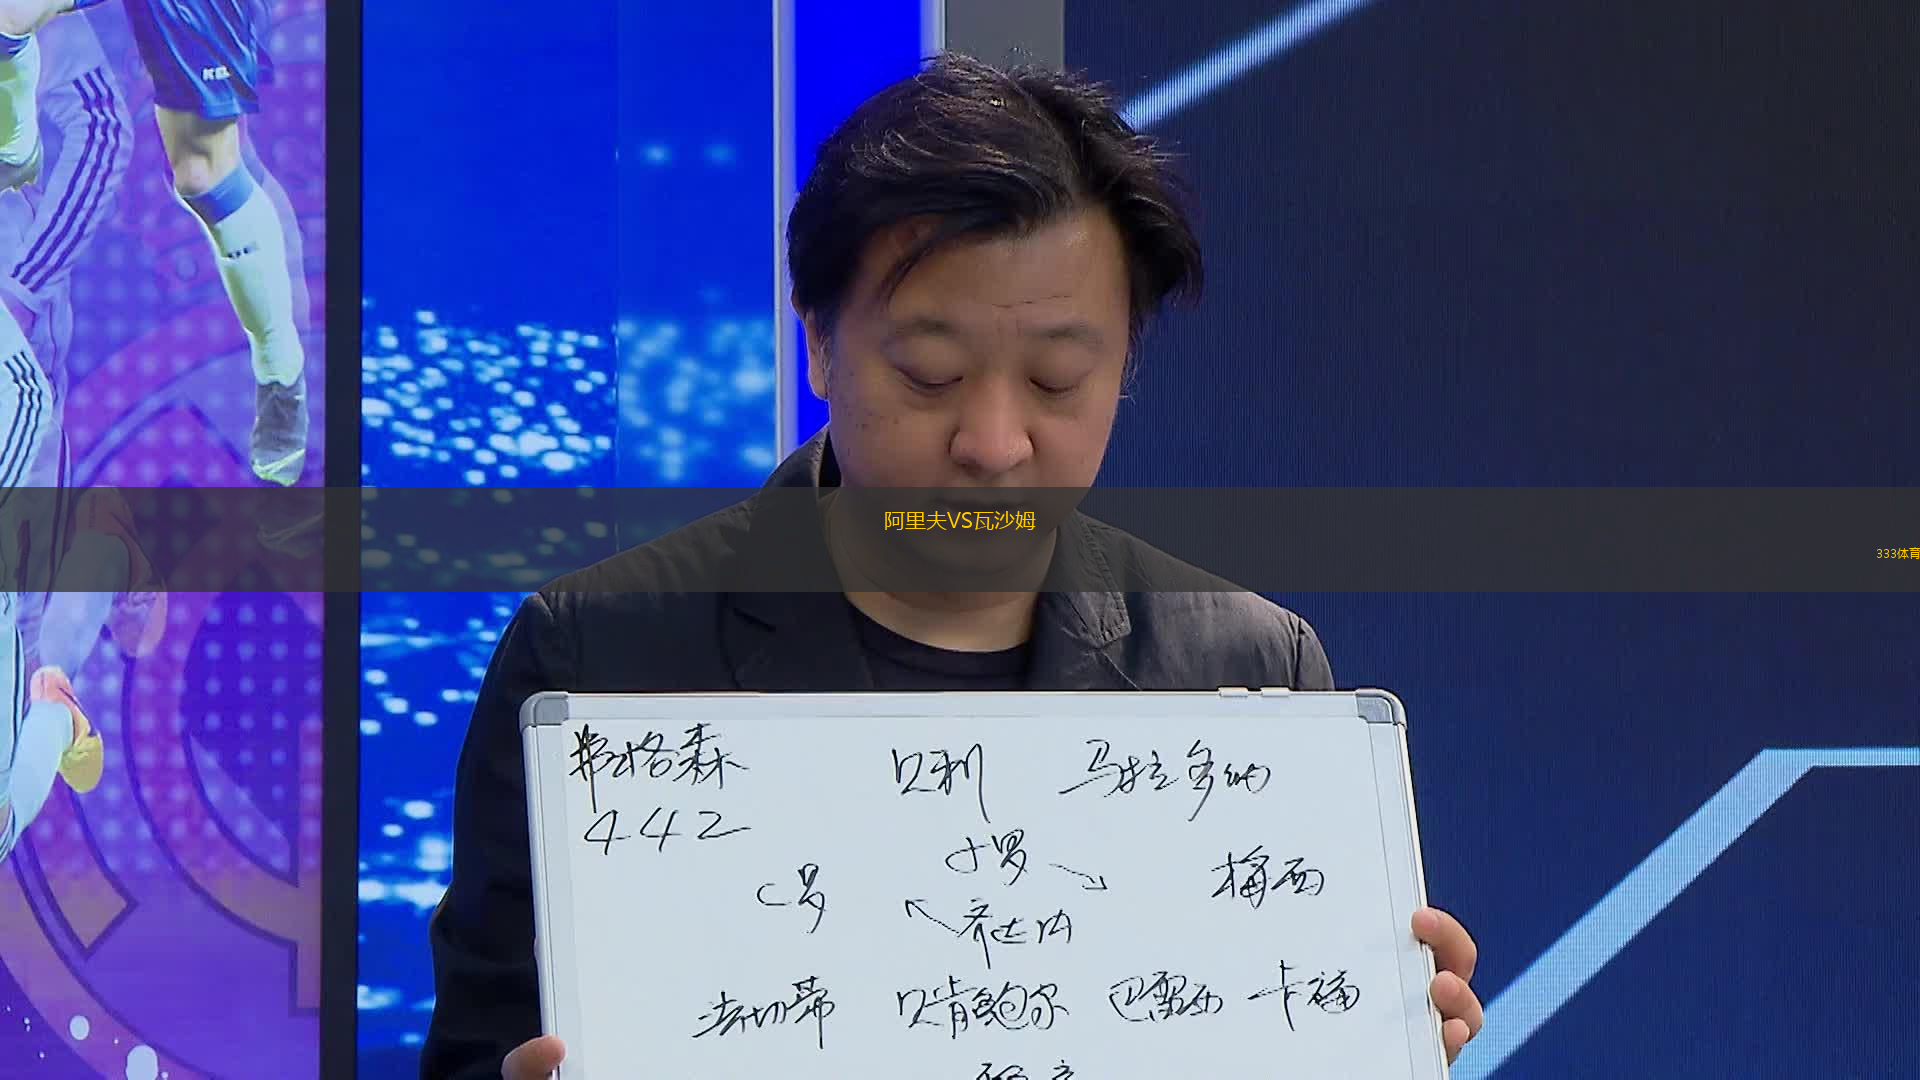 阿里夫VS瓦沙姆
333体育
弗格森 贝利 马拉多纳
442
小罗
C罗 梅西
齐达内
法切蒂 贝肯鲍尔 巴雷西 卡福